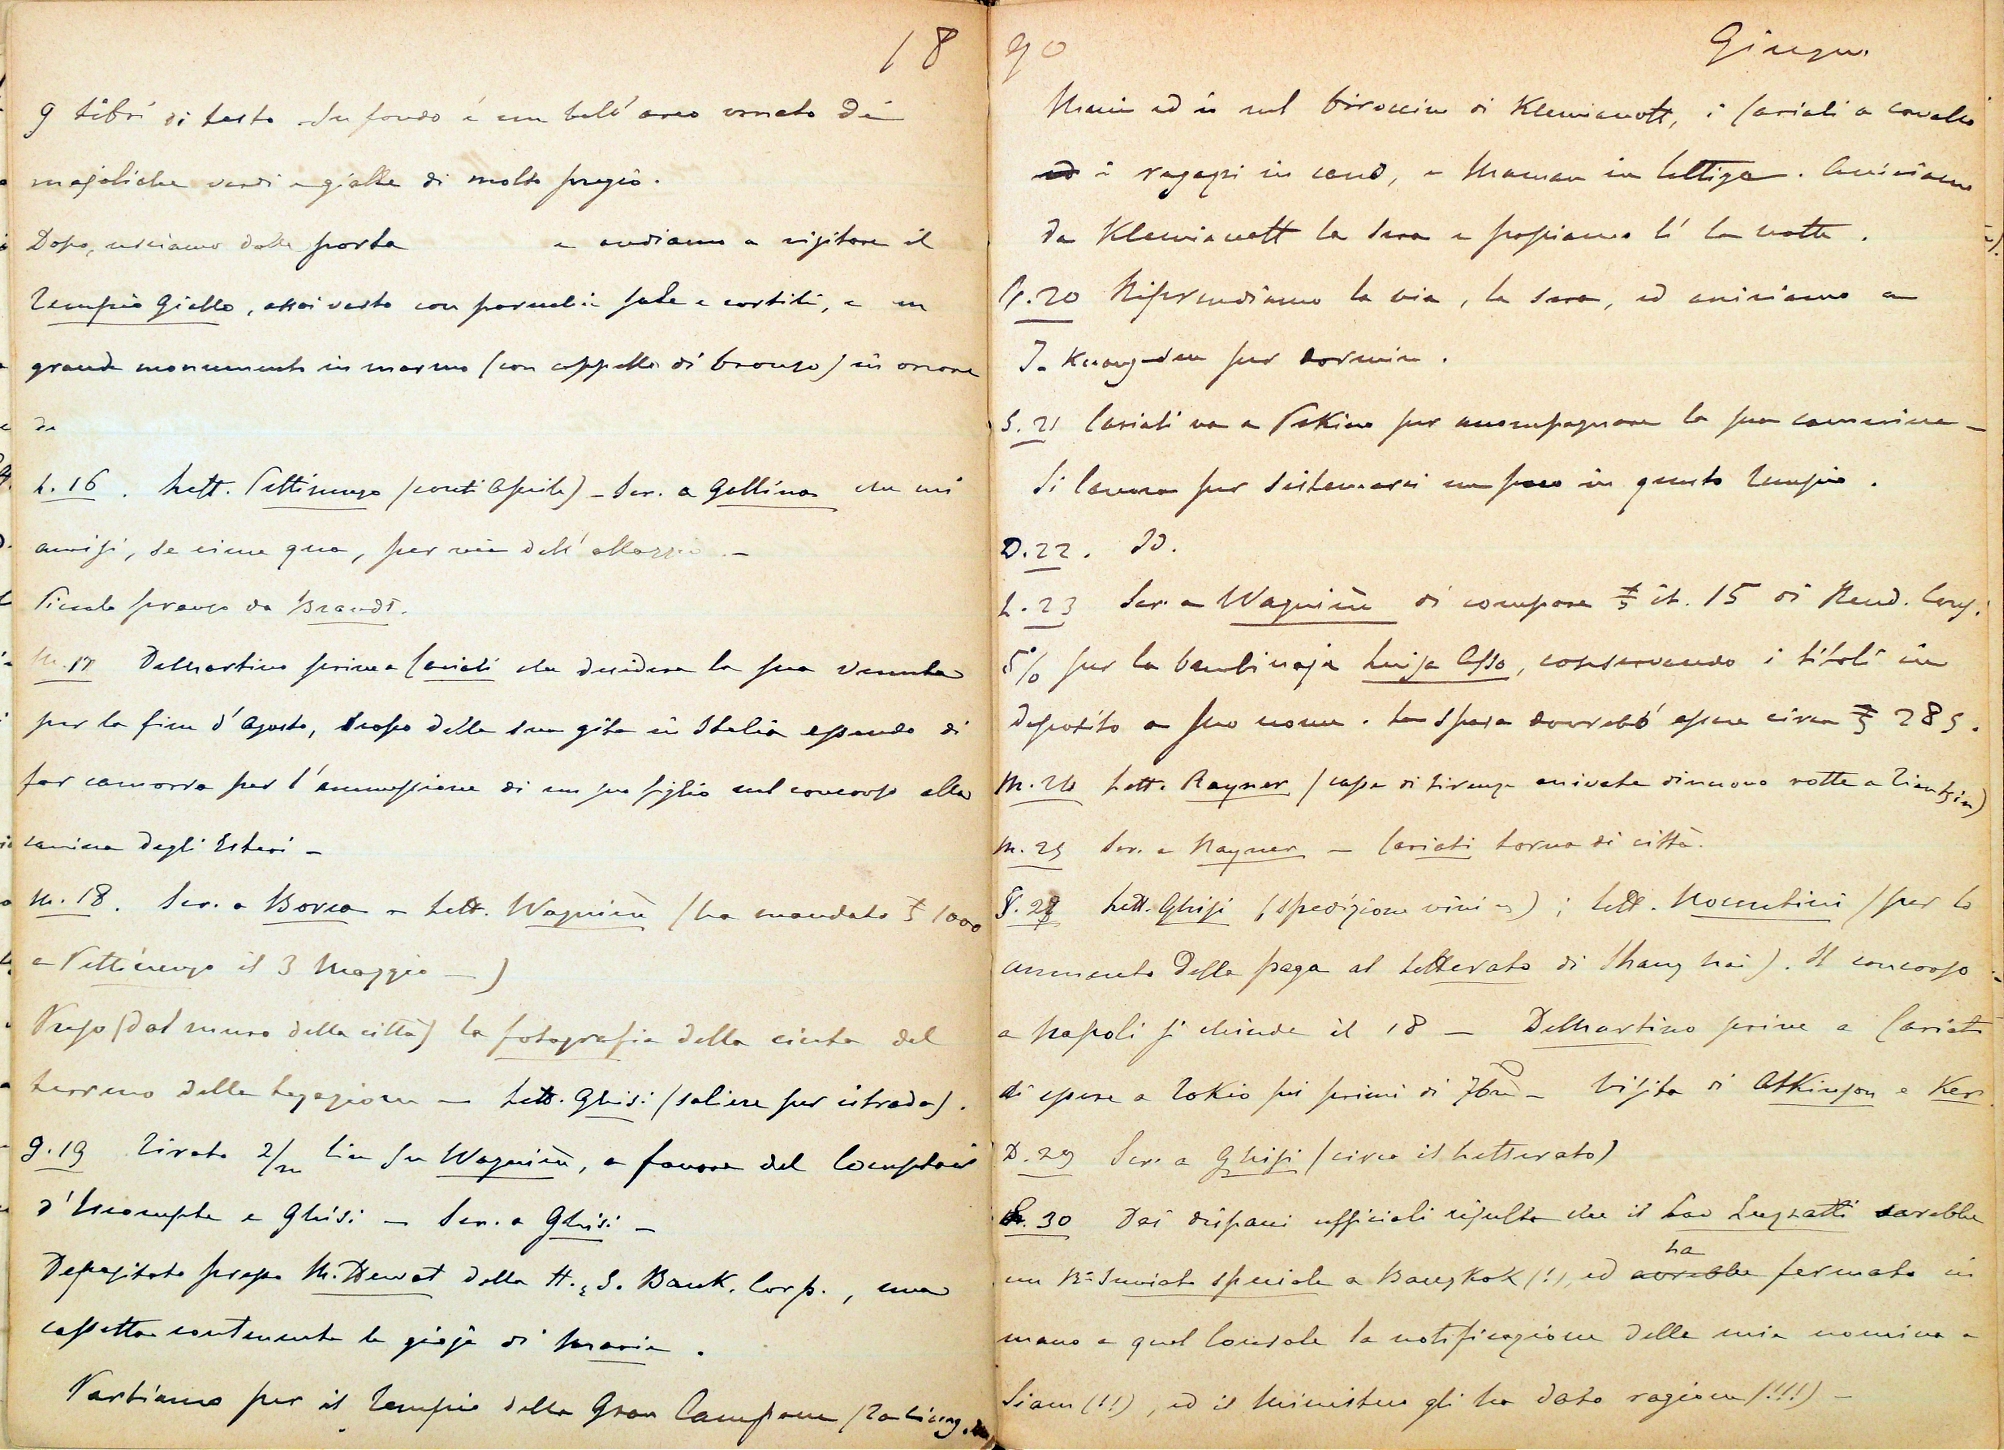 18
9 libri di testo. In fondo è un bell'arco ornato di
majoliche verdi e gialle di molto pregio.
Dopo, usciamo dalla porta e andiamo a visitare il
Tempio Giallo, assai vasto con parecchie sale e cortili, e un
grande monumento in marmo (con cappello di bronzo) in onore
di
L. 16. Lett. Pettinengo (conti Aprile) - Scr. a Gallina che mi
avvisi, se viene qua, per via dell'alloggio. -
Piccolo pranzo da Brandt.
M. 17 DeMartino scrive a Cariati che desidera la sua venuta
per la fine d'Agosto, scopo della sua gita in Italia essendo di
far camorra per l'ammissione di un suo figlio nel concorso alla
carriera degli Esteri -
M. 18. Scr. a Borea - Lett. Wagnière (ha mandato £ 1000
a Pettinengo il 3 Maggio -)
Preso (dal muro della città) la fotografia della cinta del
terreno della Legazione - Lett. Ghisi (saliere per istrada).
G. 19 Tirato 2/m lire su Wagnière, a favore del Comptoir
d'Escompte e Ghisi - Scr. a Ghisi -
Depositato presso M. Hewat della H. & S. Bank. Corp., una
cassetta contenente le gioje di Maria.
Partiamo per il Tempio della Gran Campana (Ta-ciung-
90 Giugno
Marie ed io nel biroccino di Kleinwott, i Cariati a cavallo
ed i ragazzi in card, e Maman in lettiga. Arriviamo
da la sera e passiamo lì la notte.
V. 20 Riprendiamo la via, la sera, ed arriviamo a
per dormire.
S. 21 Cariati va a Pekino per accompagnare la sua cameriera -
Si lavora per sistemarci un poco in questo Tempio.
D. 22. Id.
L. 23 Scr. a Wagnière di comprare £ it. 15 di Rend. Cons.
5% per la bambinaja Luisa Asso, conservando i titoli in
deposito a suo nome. La spesa dovrebb'essere circa £ 285.
M. 24 Lett. Rayner (casse di Firenze arrivate di nuovo rotte a Tientsin)
M. 25 Scr. a Rayner - Cariati torna di città.
V. 27 Lett. Ghisi (spedizione vini); Lett. Nocentini (per lo
aumento della paga al letterato di Shanghai). Il concorso
a Napoli si chiude il 18 - DeMartino scrive a Cariati
di essere a Tokio pei primi di 7bre - Visita di Atkinson e Ker.
D. 29 Scr. a Ghisi (circa il Letterato)
L. 30 Dai dispacci ufficiali risulta che il Cav Luzzatti sarebbe
un R° Inviato speciale a Bangkok (!), ed avrebbe ha fermato in
mano a quel Console la notificazione della mia nomina a
Siam (!!), ed il Ministero gli ha dato ragione (!!!) -